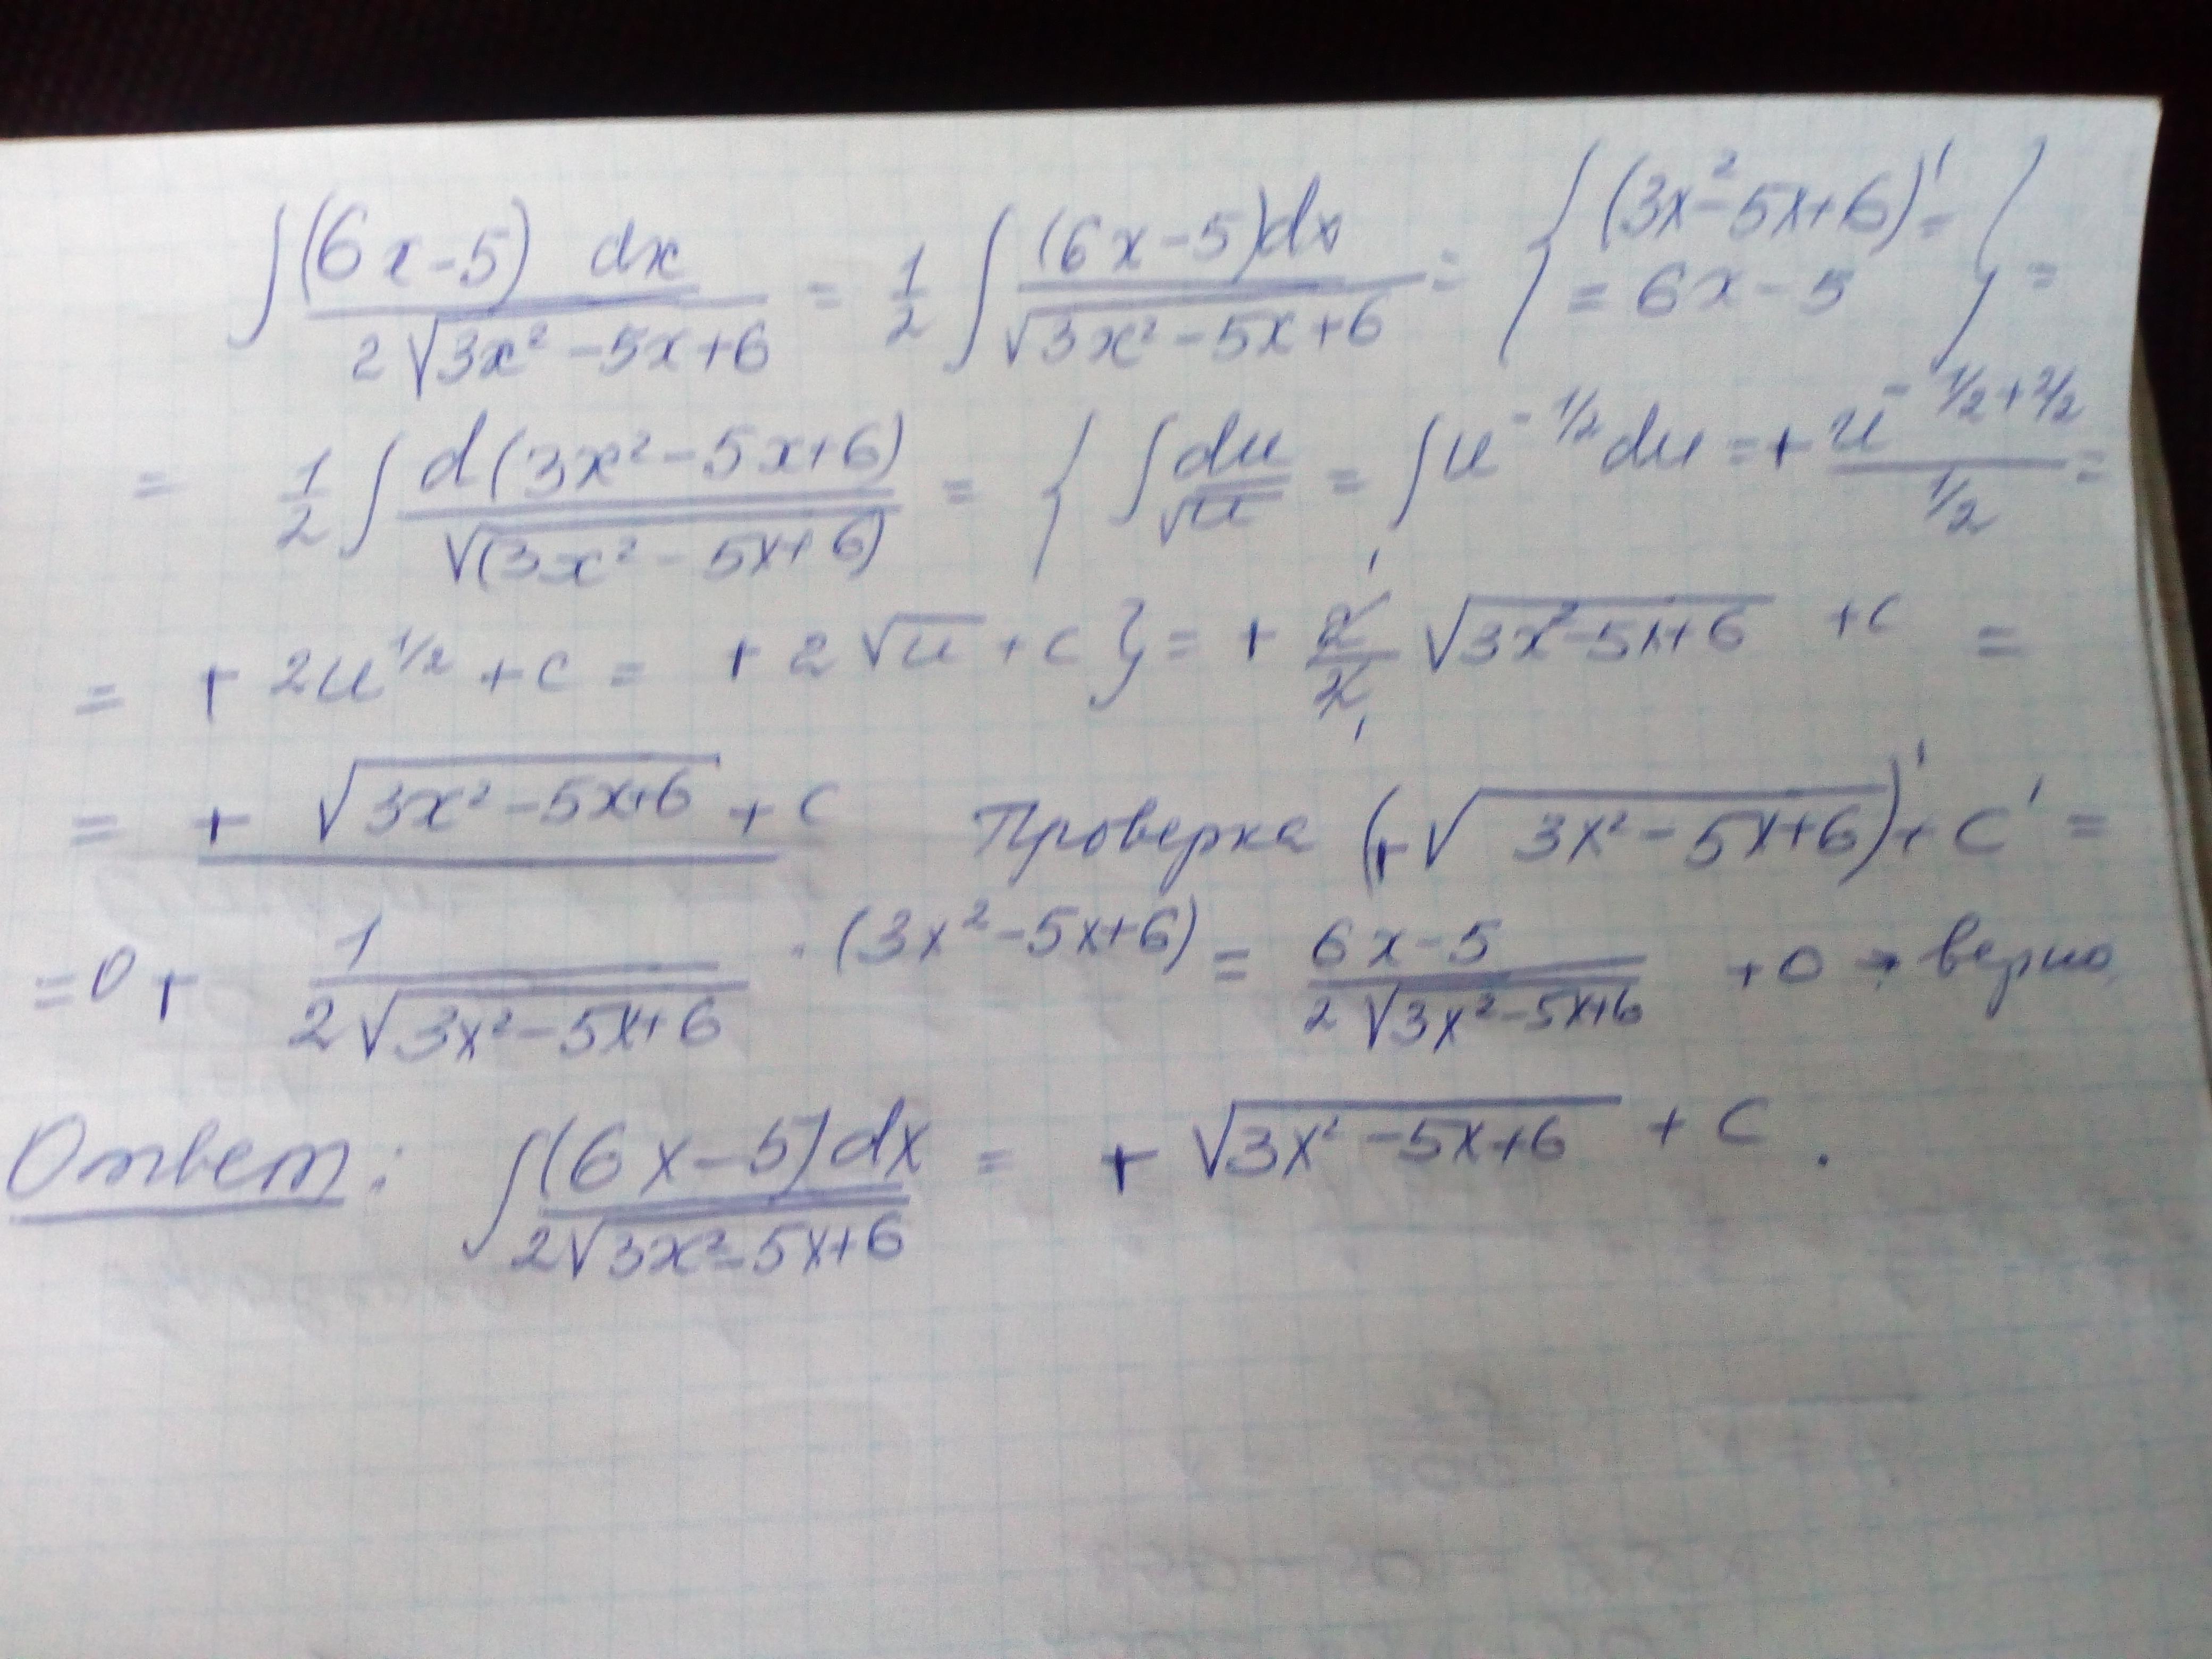 ∫ (6x-5) dx / 2√(3x²-5x+6) = 1/2 ∫ (6x-5)dx / √(3x²-5x+6) = { (3x²-5x+6)' = = 6x-5 } =
= 1/2 ∫ d(3x²-5x+6) / √(3x²-5x+6) = { ∫ du/√u = ∫ u^(-1/2) du = + u^(-1/2+2/2) / (1/2) =
= + 2u^(1/2) + c = + 2√u + c } = + 2/2 √(3x²-5x+6) + c =
= + √(3x²-5x+6) + c Проверка (+√(3x²-5x+6))' + c' =
= 0 + 1 / 2√(3x²-5x+6) · (3x²-5x+6) = 6x-5 / 2√(3x²-5x+6) + 0 → верно
Ответ: ∫ (6x-5)dx / 2√(3x²-5x+6) = + √(3x²-5x+6) + c .